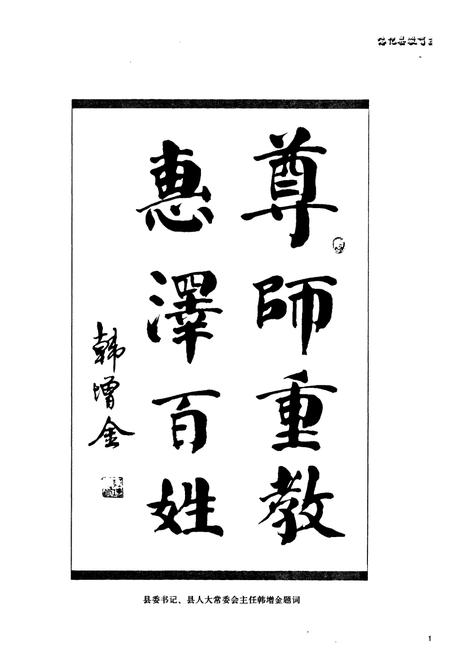 尊師重教
惠澤百姓
韩增金
县委书记、县人大常委会主任韩增金题词
1